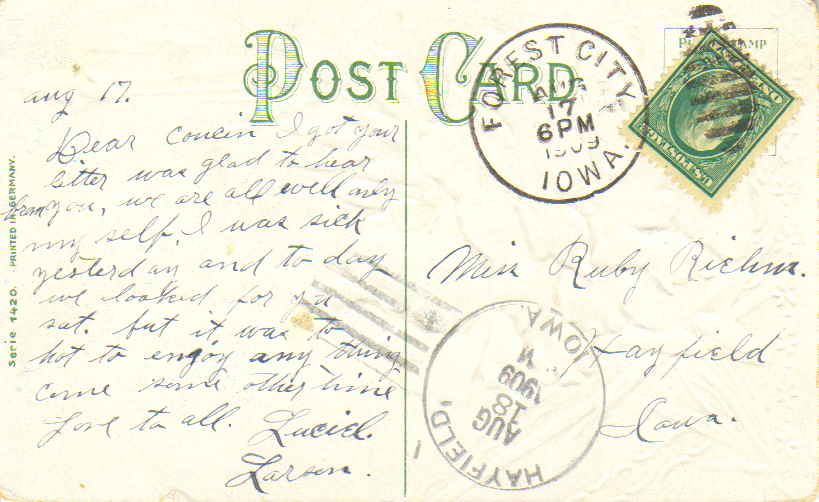 POST CARD
aug 17.
Dear Coucin I got your
letter was glad to hear
from you, we are all well only
my self. I was sick
yesterday and to day
we looked for you
sat. but it was to
hot to enjoy any thing
come some other time
Love to all. Luciel.
Larsen.
Serie 1420. PRINTED IN GERMANY.
FOREST CITY,
AUG
17
6PM
1909
IOWA.
Miss Ruby Riehm.
Hayfield
Iowa.
HAYFIELD,
AUG
18
1909
IOWA.